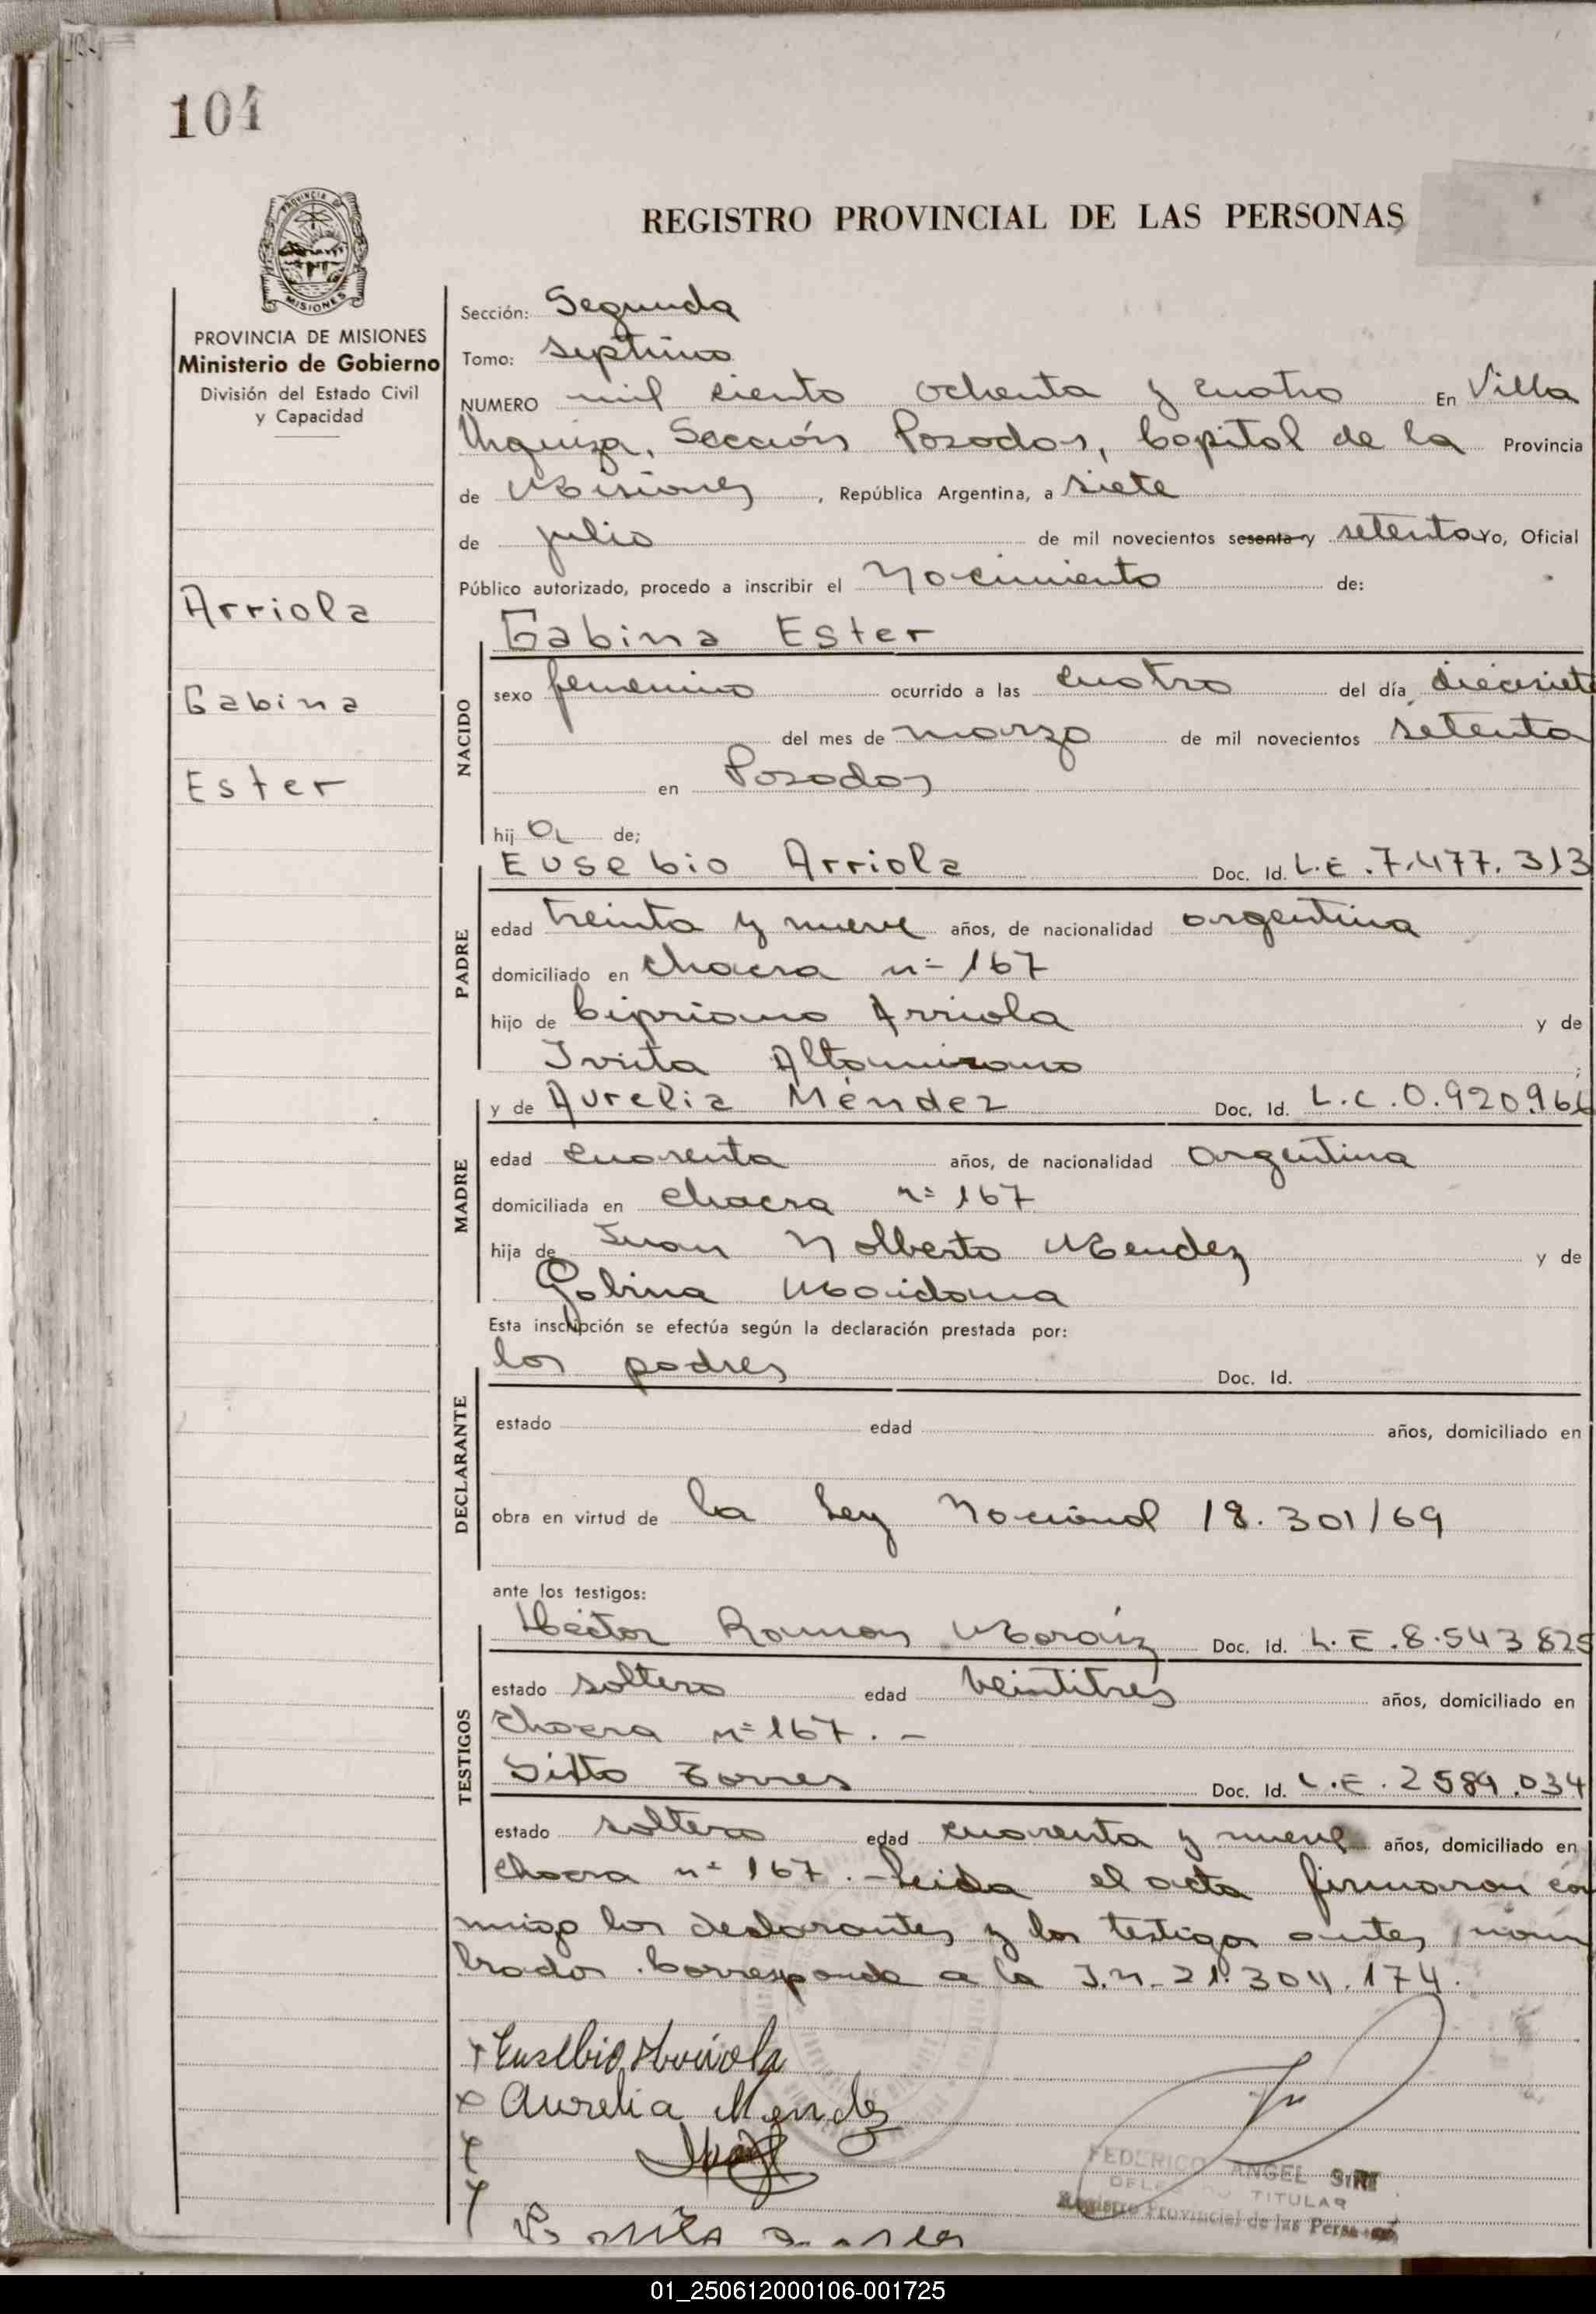 104
PROVINCIA DE
MISIONES
REGISTRO PROVINCIAL DE LAS PERSONAS
PROVINCIA DE MISIONES
Ministerio de Gobierno
División del Estado Civil
y Capacidad
Arriola
Gabina
Ester
Sección: Segunda
Tomo: septimo
NUMERO mil ciento ochenta y cuatro En Villa
Urquiza, Sección Posadas, Capital de la Provincia
de Misiones, República Argentina, a siete
de julio de mil novecientos sesenta y setenta Yo, Oficial
Público autorizado, procedo a inscribir el Nacimiento de:
Gabina Ester
NACIDO
sexo femenino ocurrido a las cuatro del día diecisiete
del mes de marzo de mil novecientos setenta
en Posadas
hij a de;
Eusebio Arriola Doc. Id. L.E. 7.477.313
PADRE
edad treinta y nueve años, de nacionalidad argentina
domiciliado en chacra nº 167
hijo de Cipriano Arriola y de
Altamirano;
y de Aurelia Méndez Doc. Id. L.C. 0.920.966
MADRE
edad cuarenta años, de nacionalidad argentina
domiciliada en chacra nº 167
hija de Juan Nolberto Mendez y de
Gabina Maidana
Esta inscripción se efectúa según la declaración prestada por:
los padres Doc. Id.
DECLARANTE
estado edad años, domiciliado en
obra en virtud de la Ley Nacional 18.301/69
ante los testigos:
Héctor Ramon Doc. Id. L.E. 8.543.825
TESTIGOS
estado soltero edad veintitrés años, domiciliado en
chacra nº 167.-
Sixto Torres Doc. Id. L.E. 2.589.034
estado soltero edad cuarenta y nueve años, domiciliado en
chacra nº 167.- Leida el acta firmaron con
migo los declarantes y los testigos antes nom
brados. Corresponde a la I.N. 21.304.174.
Eusebio Arriola
Aurelia Mendez
FEDERICO ANGEL
TITULAR
Registro Provincial de las Personas
01_250612000106-001725